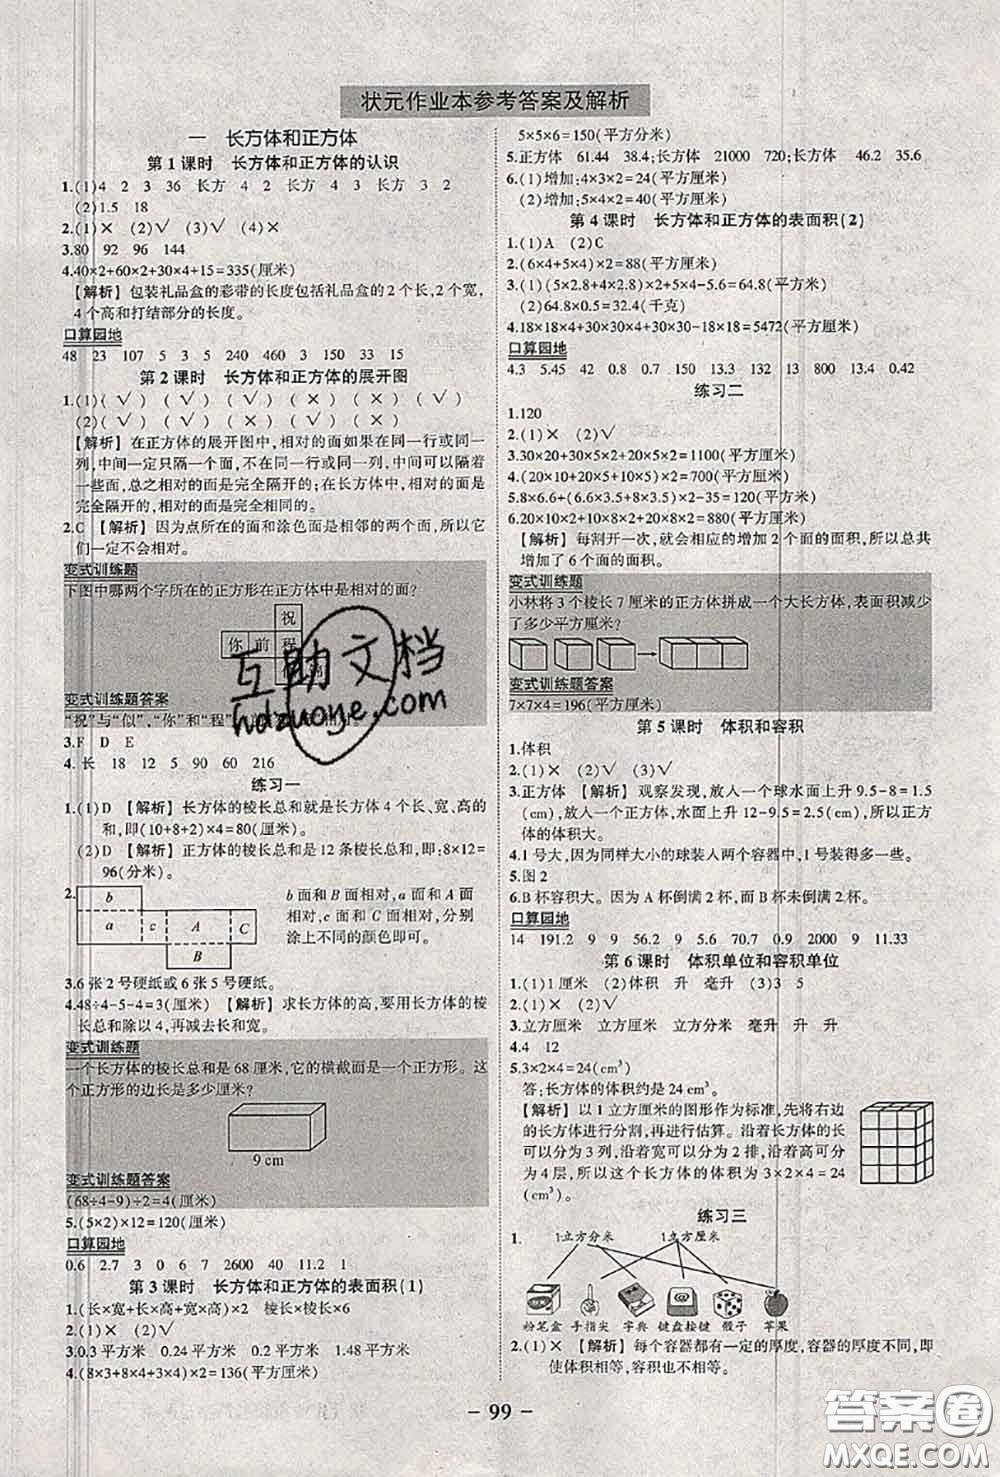 状元作业本参考答案及解析
一 长方体和正方体
第1课时 长方体和正方体的认识
1.(1)4 2 3 36 长方 4 2 长方 4 3 长方 3 2
(2)1.5 18
2.(1)× (2)√ (3)√ (4)×
3.80 92 96 144
4.40×2+60×2+30×4+15=335(厘米)
【解析】包装礼品盒的彩带的长度包括礼品盒的2个长,2个宽,
4个高和打结部分的长度。
口算园地
48 23 107 5 3 5 240 460 3 150 33 15
第2课时 长方体和正方体的展开图
1.(1)(√) (√) (√) (×) (×) (√)
(2)(√) (√) (×) (×) (×) (√)
【解析】在正方体的展开图中,相对的面如果在同一行或同一
列,中间一定只隔一个面,不在同一行或同一列,中间可以隔着
一些面,总之相对的面是完全隔开的;在长方体中,相对的面是
完全隔开的,也是完全相同的。
2.C 【解析】因为点所在的面和涂色面是相邻的两个面,所以它
们一定不会相对。
变式训练题
下图中哪两个字所在的正方形在正方体中是相对的面?
祝
你 前 程
变式训练题答案
“祝”与“似”,“你”和“程”
3.F D E
4.长 18 12 5 90 60 216
练习一
1.(1)D 【解析】长方体的棱长总和就是长方体4个长、宽、高的
和,即(10+8+2)×4=80(厘米)。
(2)D 【解析】正方体的棱长总和是12条棱长总和,即:8×12=
96(分米)。
2.
b
a c A C
B
b面和B面相对,a面和A面
相对,c面和C面相对,分别
涂上不同的颜色即可。
3.6张2号硬纸或6张5号硬纸。
4.48÷4-5-4=3(厘米) 【解析】求长方体的高,要用长方体的棱
长总和除以4,再减去长和宽。
变式训练题
一个长方体的棱长总和是68厘米,它的横截面是一个正方形。这
个正方形的边长是多少厘米?
9 cm
变式训练题答案
(68÷4-9)÷2=4(厘米)
5.(5×2)×12=120(厘米)
口算园地
0.6 2.7 3 0 6 7 2600 40 11.2 1
第3课时 长方体和正方体的表面积(1)
1.(长×宽+长×高+宽×高)×2 棱长×棱长×6
2.(1)√ (2)×
3.0.3平方米 0.24平方米 0.2平方米 1.48平方米
4.(8×3+8×4+3×4)×2=136(平方厘米)
5×5×6=150(平方分米)
5.正方体 61.44 38.4;长方体 21000 720;长方体 46.2 35.6
6.(1)增加:4×3×2=24(平方厘米)
(2)增加:5×4×2=40(平方厘米)
第4课时 长方体和正方体的表面积(2)
1.(1)A (2)C
2.(6×4+5×4)×2=88(平方厘米)
3.(1)(5×2.8+4×2.8)×2+5×4-5.6=64.8(平方米)
(2)64.8×0.5=32.4(千克)
4.18×18×4+30×30×4+30×30-18×18=5472(平方厘米)
口算园地
4.3 5.45 42 0.8 0.7 150 13.3 132 13 800 13.4 0.42
练习二
1.120
2.(1)× (2)√
3.30×20+30×5×2+20×5×2=1100(平方厘米)
4.(20×10+20×5+10×5)×2=700(平方厘米)
5.8×6.6+(6.6×3.5+8×3.5)×2-35=120(平方米)
6.20×10×2+10×12×2+20×12=880(平方厘米)
【解析】每割开一次,就会相应的增加2个面的面积,所以共
增加了6个面的面积。
变式训练题
小林将3个棱长7厘米的正方体拼成一个大长方体,表面积减少
了多少平方厘米?
变式训练题答案
7×7×4=196(平方厘米)
第5课时 体积和容积
1.体积
2.(1)× (2)√ (3)√
3.正方体 【解析】观察发现,放入一个球水面上升9.5-8=1.5
(cm),放入一个正方体,水面上升12-9.5=2.5(cm),所以正方
体的体积大。
4.1号大,因为同样大小的球装入两个容器中,1号装得多一些。
5.图2
6.B杯容积大。因为A杯倒满2杯,而B杯未倒满2杯。
口算园地
14 191.2 9 9 56.2 9 5.6 70.7 0.9 2000 9 11.33
第6课时 体积单位和容积单位
1.(1)1厘米 (2)体积 升 毫升 (3)3 5
2.(1)× (2)√
3.立方厘米 立方米 立方分米 毫升 升
4.4 12
5.3×2×4=24(cm³)
答:长方体的体积约是24 cm³。
【解析】以1立方厘米的图形作为标准,先将右边
的长方体进行分割,再进行估算。沿着长方体的长
可以分为3列,沿着宽可以分为2排,沿着高可以分
为4层,所以这个长方体的体积为3×2×4=24
(cm³)。
练习三
1. 1立方分米 1立方厘米
粉笔盒 手指尖 字典 键盘按键 骰子 苹果
2.(1)× 【解析】每个容器都有一定的厚度,容器的厚度不同,即
使体积相等,容积也不相等。
- 99 -
互助文档
hdzuoye.com
答案圈
MXQE.COM